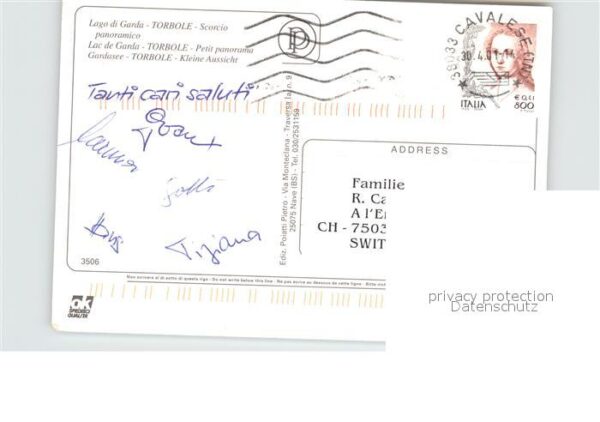 Lago di Garda - TORBOLE - Scorcio
panoramico
Lac de Garda - TORBOLE - Petit panorama
Gardasee - TORBOLE - Kleine Aussicht
PP
38033 CAVALESE (TN)
30.4.01
ITALIA
€ 0,41
800
Tanti cari saluti
Tiziana
Ediz. Poletti Pietro - Via Monteclana - Traversa Ia, n. 9
25075 Nave (BS) - Tel. 030/2531159
ADDRESS
Familie
R. Ca
A l'E
CH - 7503
SWIT
3506
Non scrivere al di sotto di questa riga - Do not write below this line - Ne pas écrire au dessous de cette ligne - Bitte nicht
ok
SPEDIBILI
QUALITÀ
privacy protection
Datenschutz